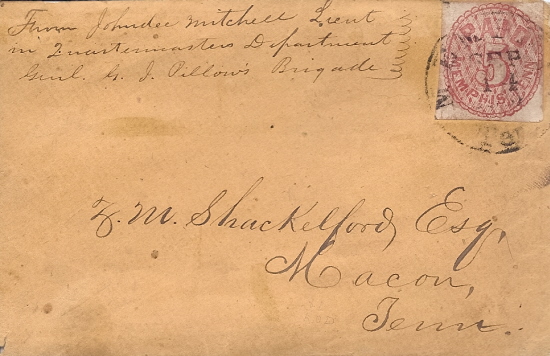 From Johndee Mitchell Lieut
in Quartermasters Department
Genl. G. J. Pillow's Brigade
PAID
5
MEMPHIS, TENN.
Z. M. Shackelford, Esq,
Macon,
Tenn.